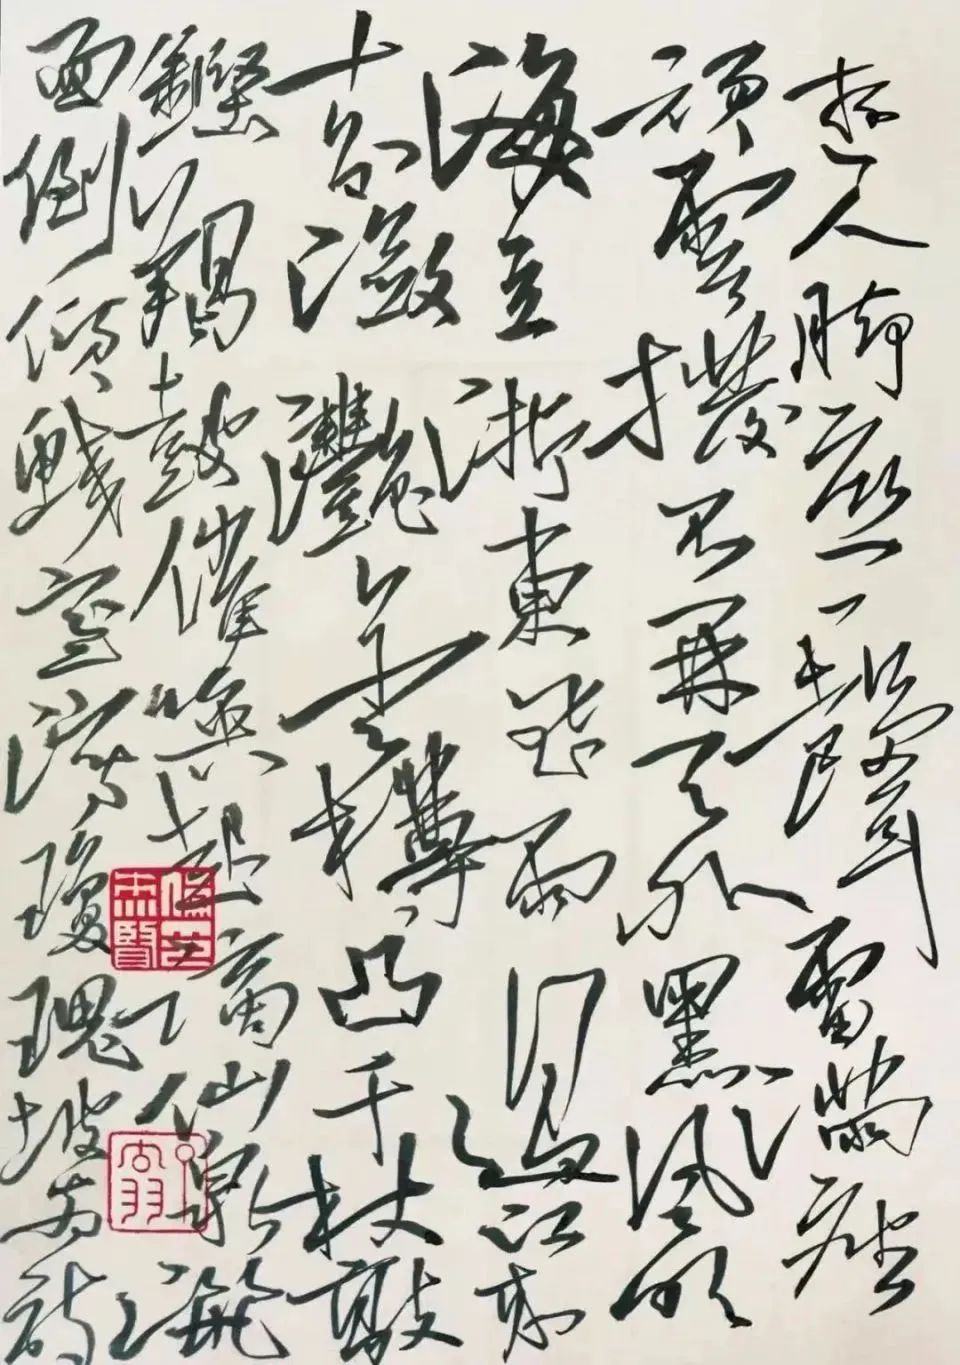 游人脚底一聲雷滿座
頑雲撥不開天外黑風吹
海立浙東飛雨過江來
十分瀲灧金樽凸千杖敲
鏗羯鼓催喚起謫仙泉灑
面倒傾鮫室瀉瓊瑰坡翁詩